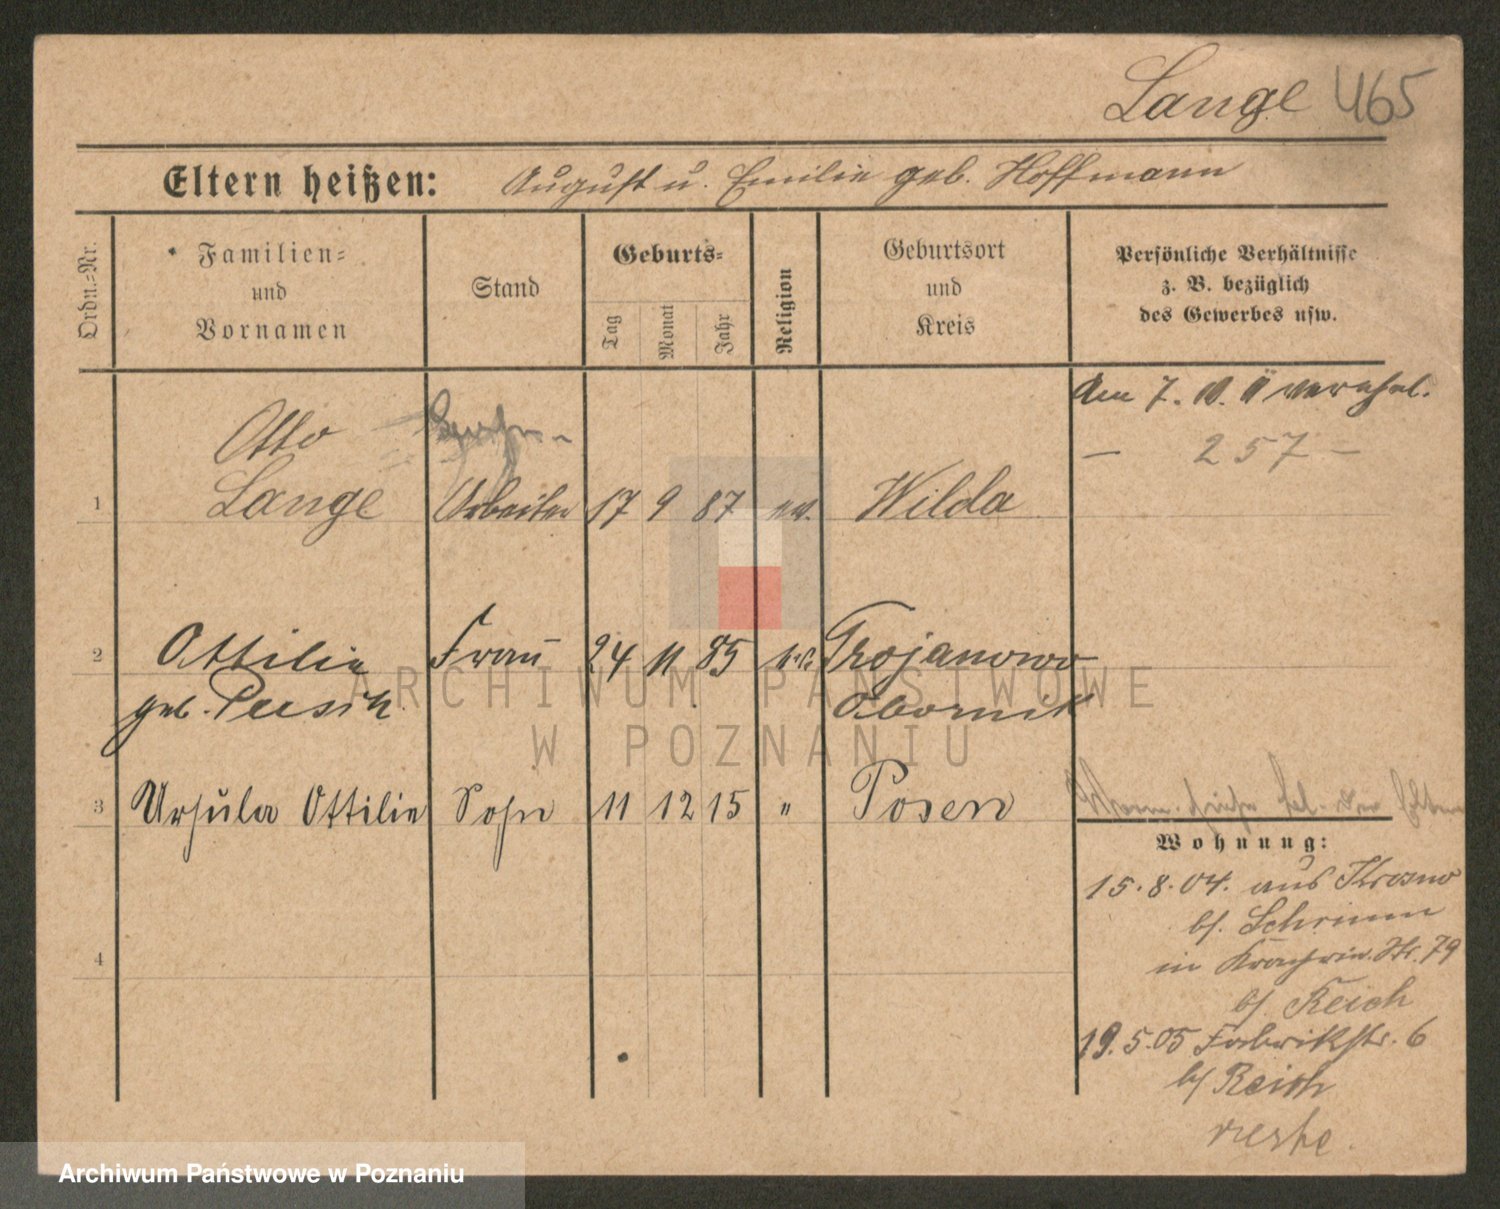 Lange 465
Eltern heißen: August u. Emilie geb. Hoffmann
Ordn.=Nr.
Familien=
und
Vornamen
Stand
Geburts=
Tag
Monat
Jahr
Religion
Geburtsort
und
Kreis
Persönliche Verhältnisse
z. B. bezüglich
des Gewerbes usw.
Am 7. verehel.
— 257 —
Otto
1 Lange Arbeiter 17 9 87 ev. Wilda
2 Ottilie Frau 24 11 85 Trojanowo
geb. Obornik
3 Ursula Ottilie Sohn 11 12 15 " Posen
Wohnung:
15.8.04. aus Krosno
b/. Schrimm
in Str. 79
b/. Reich
4
19.5.05 Fabrikstr. 6
b/ Reich
ARCHIWUM PAŃSTWOWE
W POZNANIU
Archiwum Państwowe w Poznaniu